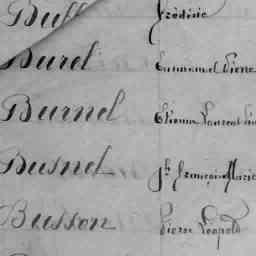 Buff Frédéric
Burel Emmanuel Pierre
Burnel Etienne Laurent
Busnel Jh François Marie
Busson Pierre Léopold